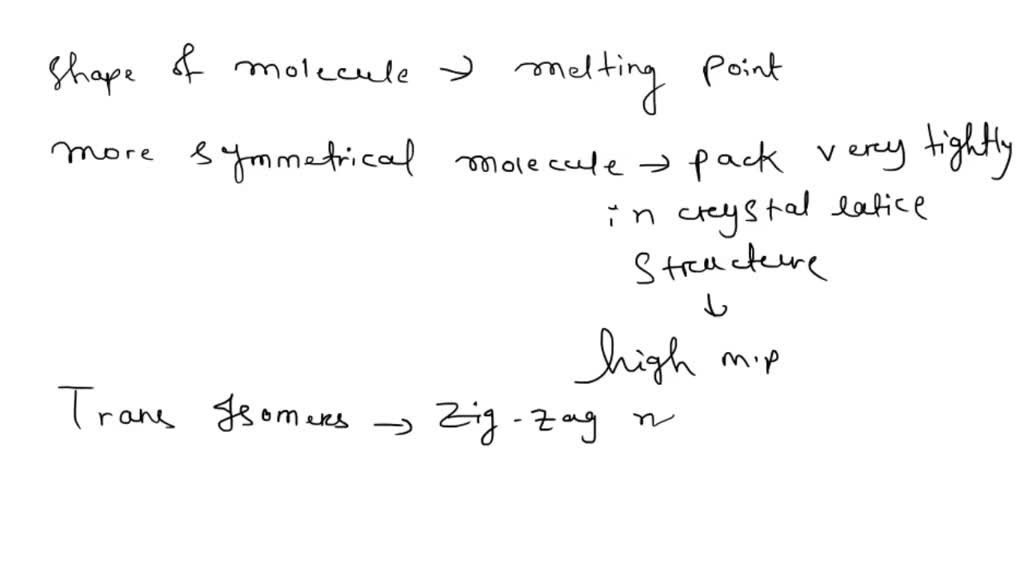 shape of molecule → melting point
more symmetrical molecule → pack very tightly
in creystal latice
structure
↓
high m.p
Trans Isomers → Zig-zag n